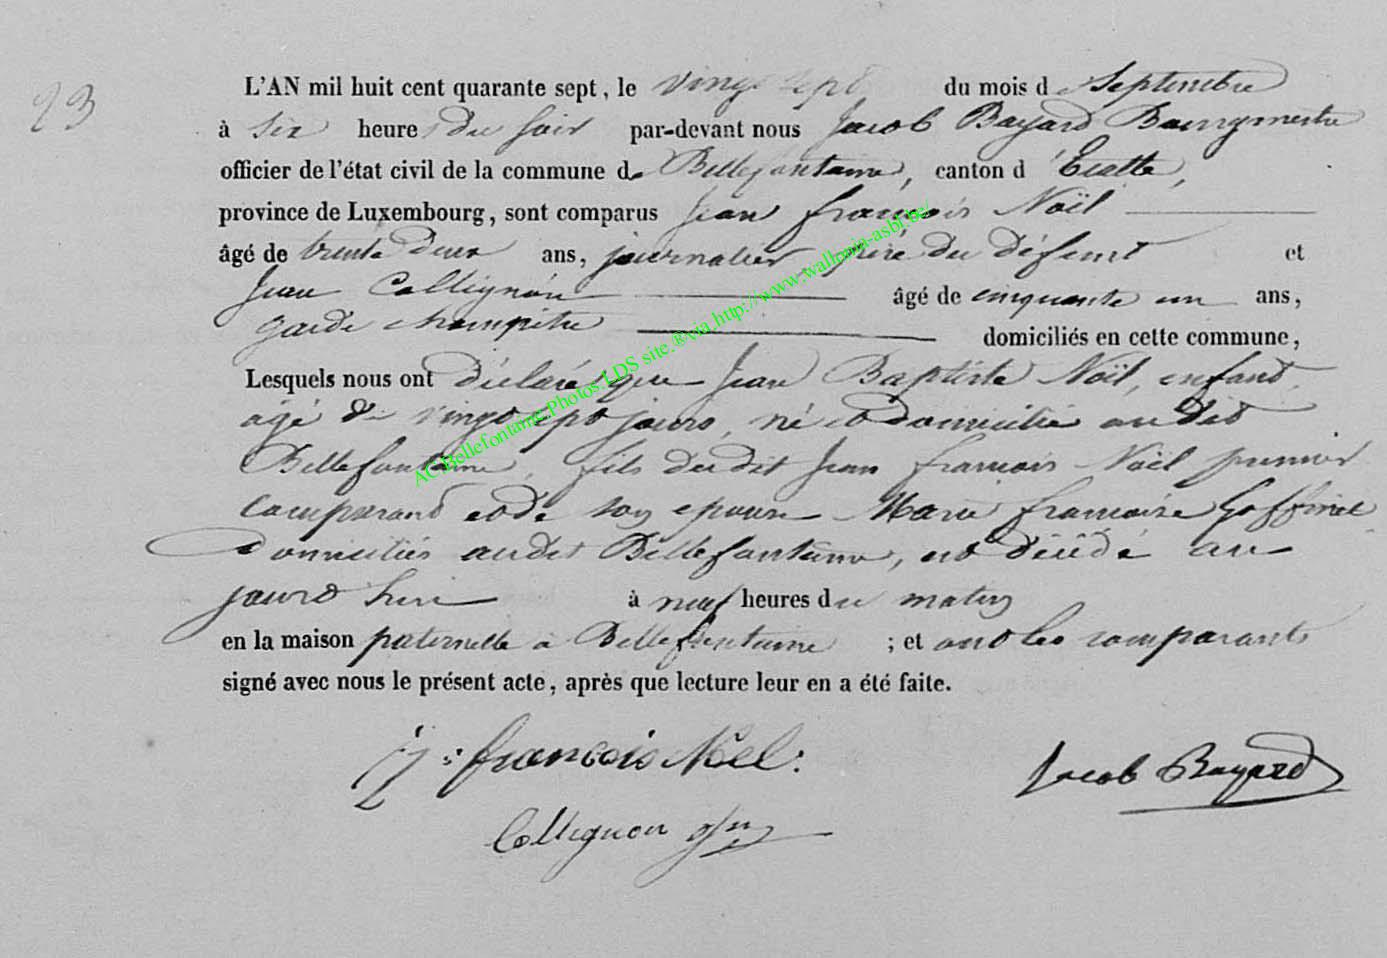 23
L'AN mil huit cent quarante sept, le vingt sept du mois de Septembre
à six heures du soir par-devant nous Jacob Bayard Bourgmestre
officier de l'état civil de la commune de Bellefontaine, canton d'Etalle,
province de Luxembourg, sont comparus Jean françois Noël
âgé de trente deux ans, journalier, père du défunt et
Jean Collignon âgé de cinquante un ans,
garde champêtre domiciliés en cette commune,
Lesquels nous ont déclaré que Jean Baptiste Noël, enfant
âgé de vingt sept jours, né et domicilié au dit
Bellefontaine, fils du dit Jean françois Noël premier
comparant et de son epouse Marie françoise Goffinet
domiciliés au dit Bellefontaine, est décédé au
jourd'hui à neuf heures du matin
en la maison paternelle à Bellefontaine ; et ont les comparants
signé avec nous le présent acte, après que lecture leur en a été faite.
j: françois Noel. Jacob Bayard
Collignon
AC Bellefontaine Photos LDS site ® via http://www.wallonia-asbl.be/